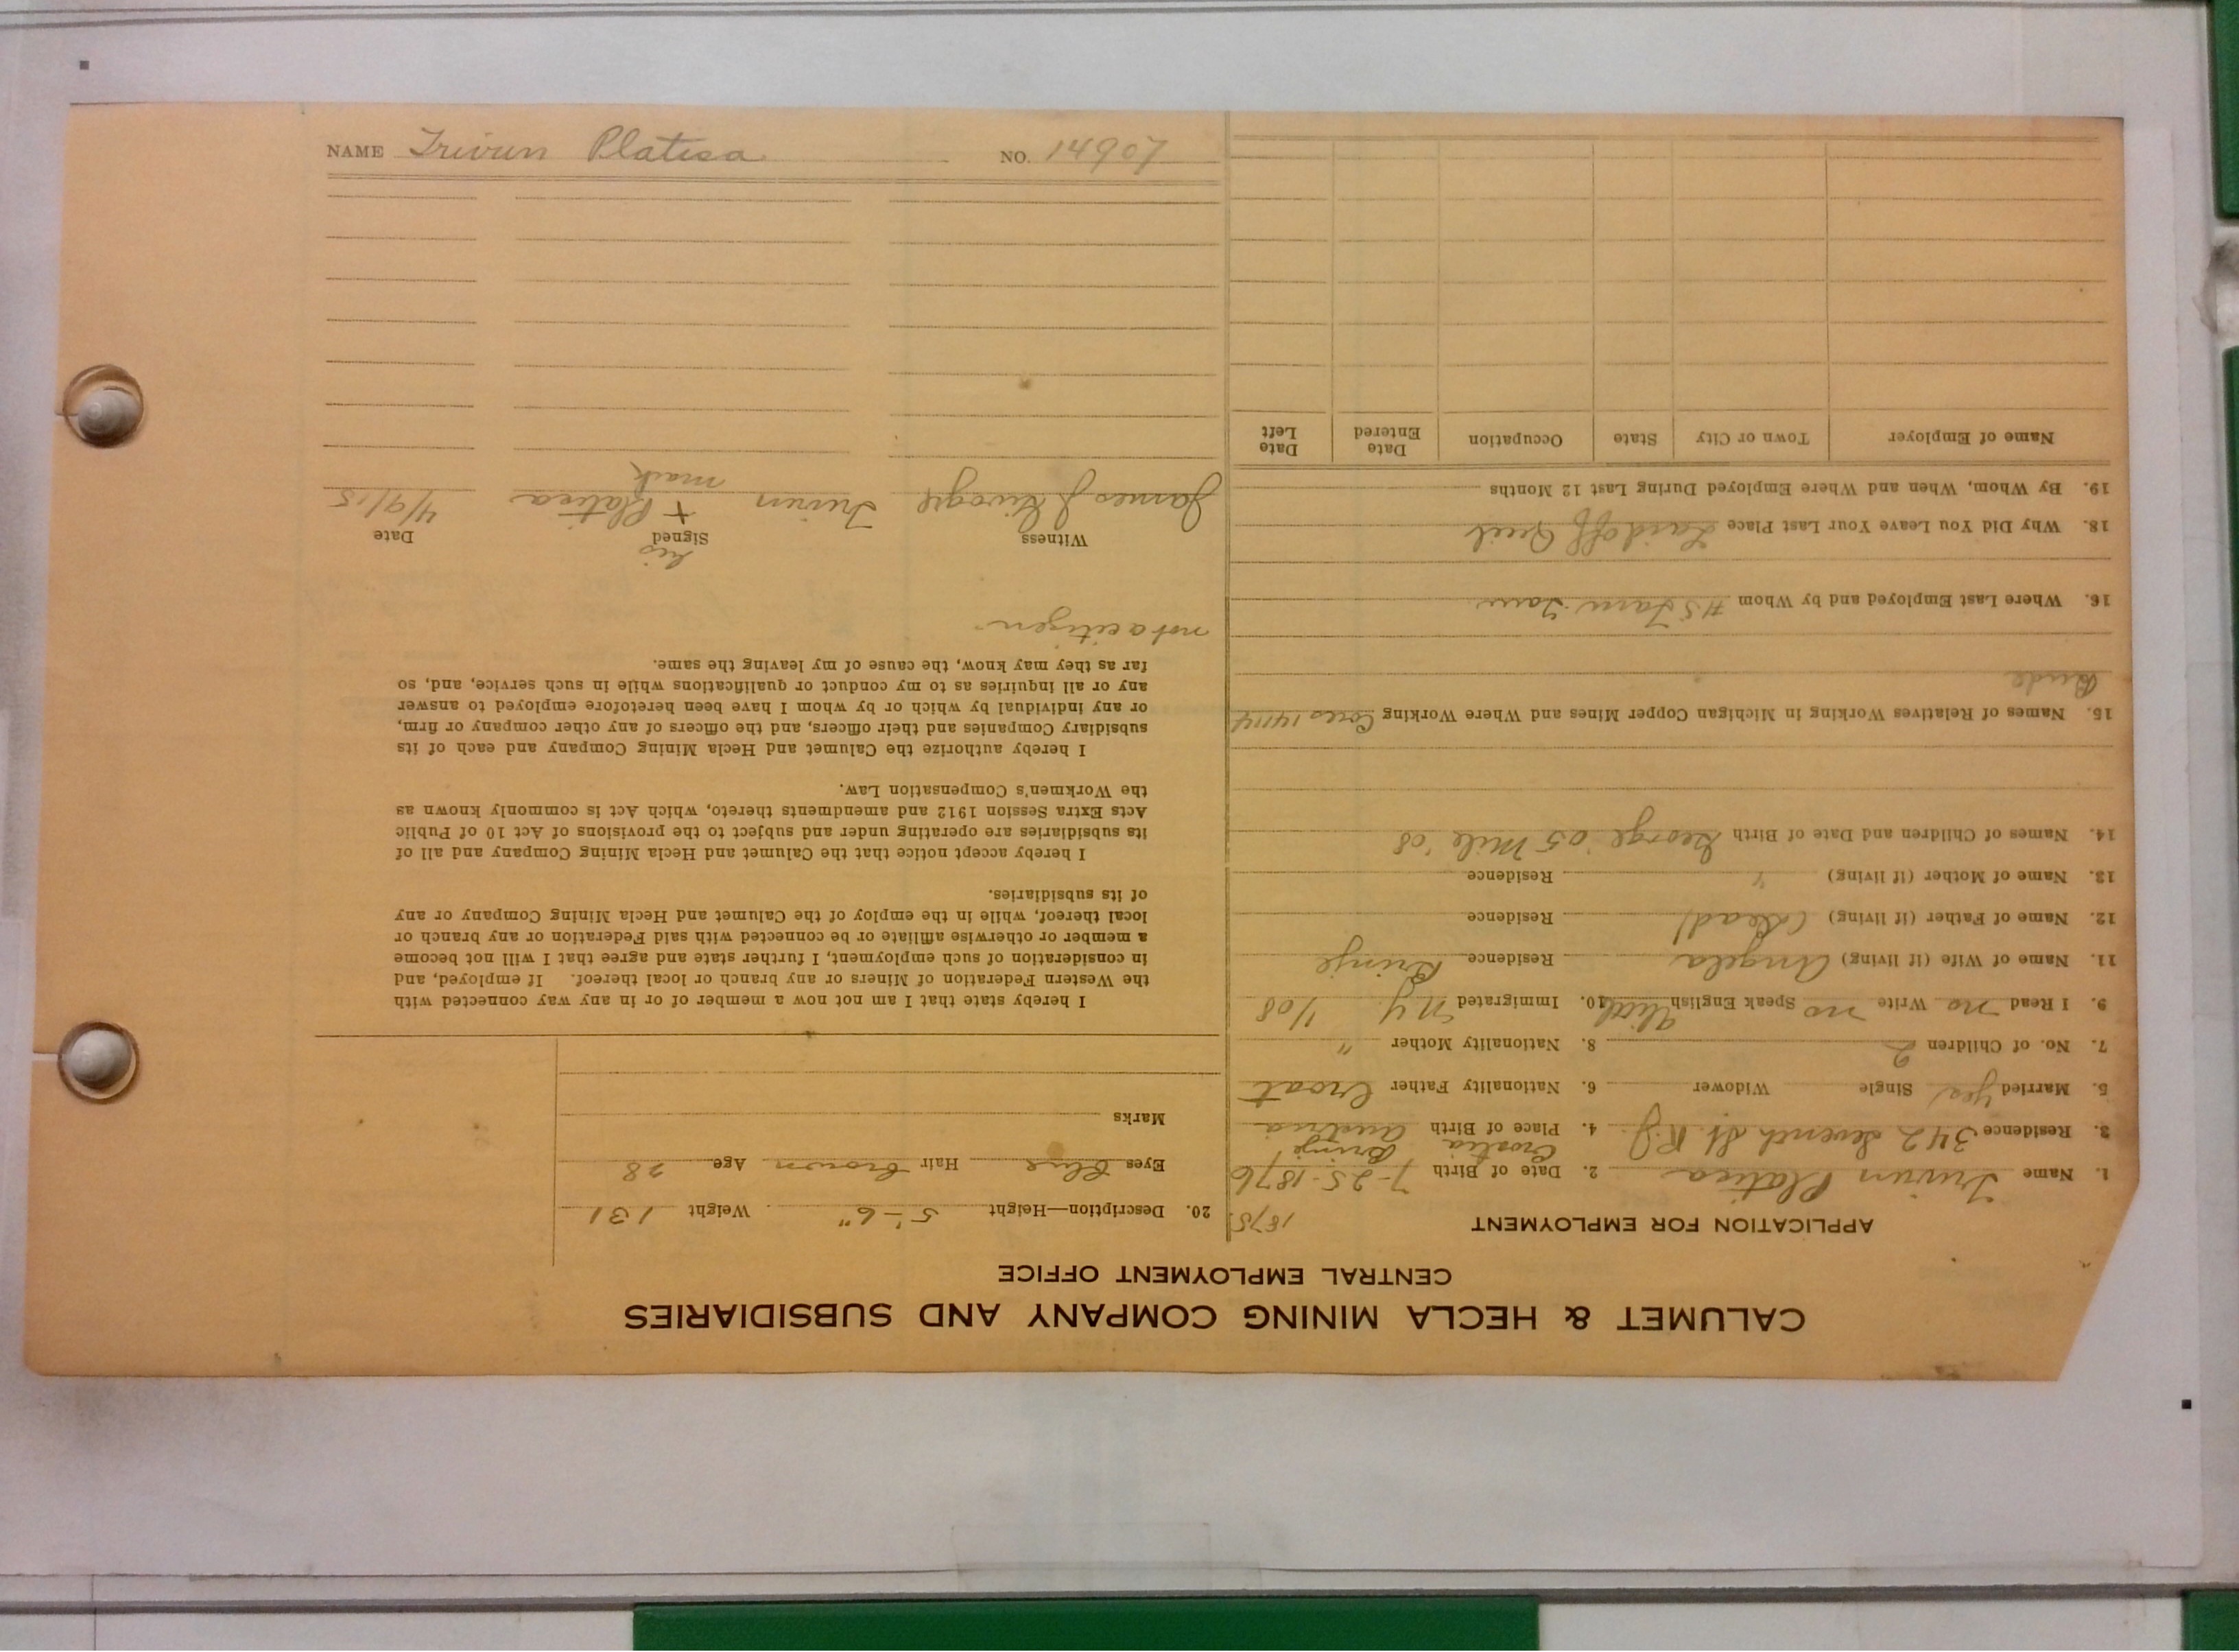 CALUMET & HECLA MINING COMPANY AND SUBSIDIARIES
CENTRAL EMPLOYMENT OFFICE
APPLICATION FOR EMPLOYMENT
1875
1. Name Trivun Platisa 2. Date of Birth 7-25-1876
Brinje
Croatia
3. Residence 342 Seventh St. R.J. 4. Place of Birth Austria
5. Married Yes Single Widower 6. Nationality Father Croat
7. No. of Children 2 8. Nationality Mother "
9. I Read no Write no Speak English 10. Immigrated N.Y. 1/08
11. Name of Wife (if living) Angela Residence Brinje
12. Name of Father (if living) (Dead) Residence
13. Name of Mother (if living) " Residence
14. Names of Children and Date of Birth George '05 Mile '08
15. Names of Relatives Working in Michigan Copper Mines and Where Working
16. Where Last Employed and by Whom
18. Why Did You Leave Your Last Place Laid off
19. By Whom, When and Where Employed During Last 12 Months
Name of Employer Town or City State Occupation Date Entered Date Left
20. Description—Height 5'-6" Weight 131
Eyes Blue Hair Brown Age 38
Marks
I hereby state that I am not now a member of or in any way connected with
the Western Federation of Miners or any branch or local thereof. If employed, and
in consideration of such employment, I further state and agree that I will not become
a member or otherwise affiliate or be connected with said Federation or any branch or
local thereof, while in the employ of the Calumet and Hecla Mining Company or any
of its subsidiaries.
I hereby accept notice that the Calumet and Hecla Mining Company and all of
its subsidiaries are operating under and subject to the provisions of Act 10 of Public
Acts Extra Session 1912 and amendments thereto, which Act is commonly known as
the Workmen's Compensation Law.
I hereby authorize the Calumet and Hecla Mining Company and each of its
subsidiary Companies and their officers, and the officers of any other company or firm,
or any individual by which or by whom I have been heretofore employed to answer
any or all inquiries as to my conduct or qualifications while in such service, and, so
far as they may know, the cause of my leaving the same.
not a citizen
his
Witness Signed Date
James J. Trivun + Platisa 4/9/15
mark
NAME Trivun Platisa NO. 14907